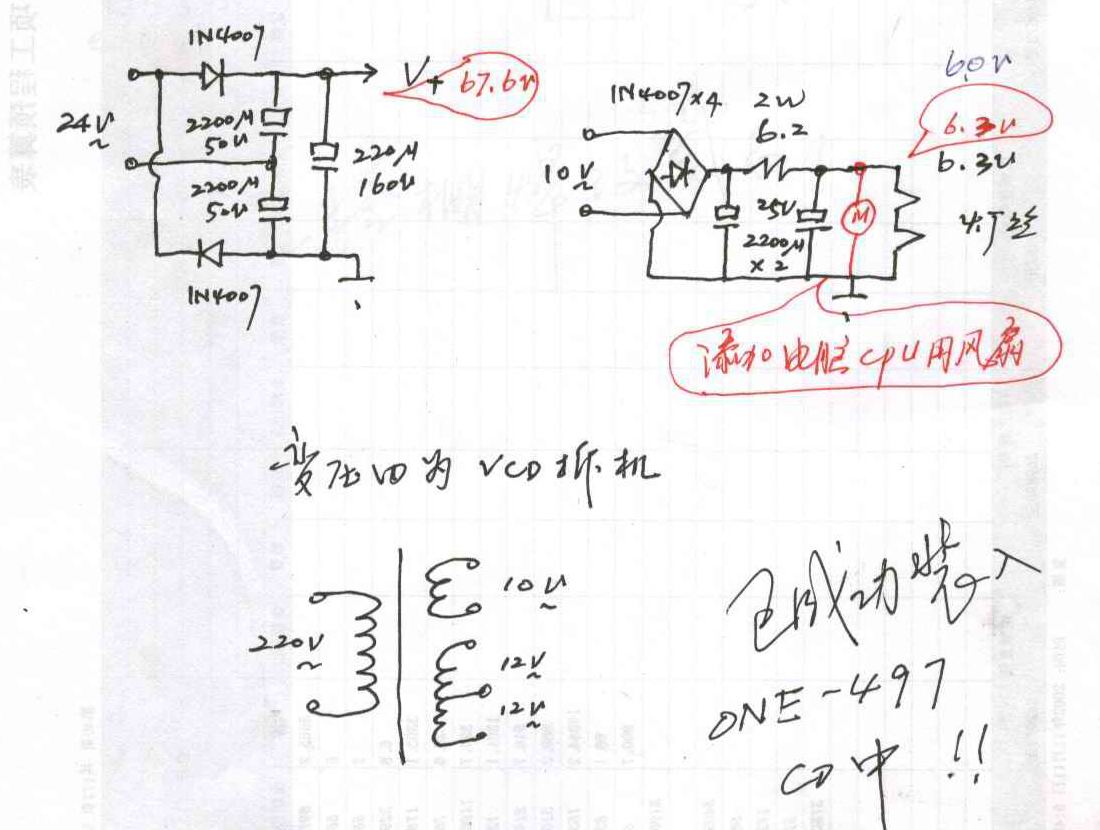 1N4007
24V
~
2200μ
50V
2200μ
50V
220μ
160V
V+
67.6V
1N4007
1N4007×4
2W
6.2
10V
~
25V
2200μ
×2
M
6.0V
6.3V
6.3V
灯丝
添加电脑CPU用风扇
变压四为 VCD拆机
220V
~
10V
~
12V
~
12V
~
已成功装入
ONE-497
CD中 !!